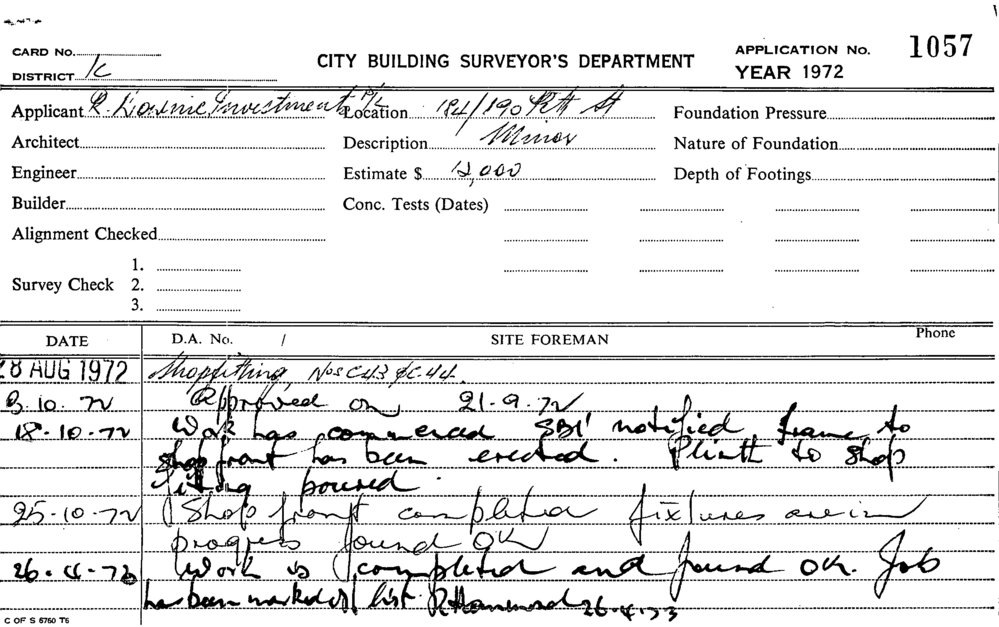 CARD No.
DISTRICT K
CITY BUILDING SURVEYOR'S DEPARTMENT
APPLICATION No. 1057
YEAR 1972
Applicant R. Investments P/L
Location 184/190 Pitt St
Foundation Pressure
Architect
Description Minor
Nature of Foundation
Engineer
Estimate $ 12,000
Depth of Footings
Builder
Conc. Tests (Dates)
Alignment Checked
Survey Check 1.
2.
3.
DATE D.A. No. / SITE FOREMAN Phone
28 AUG 1972 Shopfitting, Nos C43 & C44.
3.10.72 Approved on 21-9-72
18-10-72 Work has commenced SBI notified frame to
shop front has been erected. Plinth to shop
fitting poured.
25-10-72 Shop front completed fixtures are in
progress found OK
26-4-73 Work is completed and found OK. Job
has been marked off list. R Hammond 26-4-73
C OF S 6760 T6